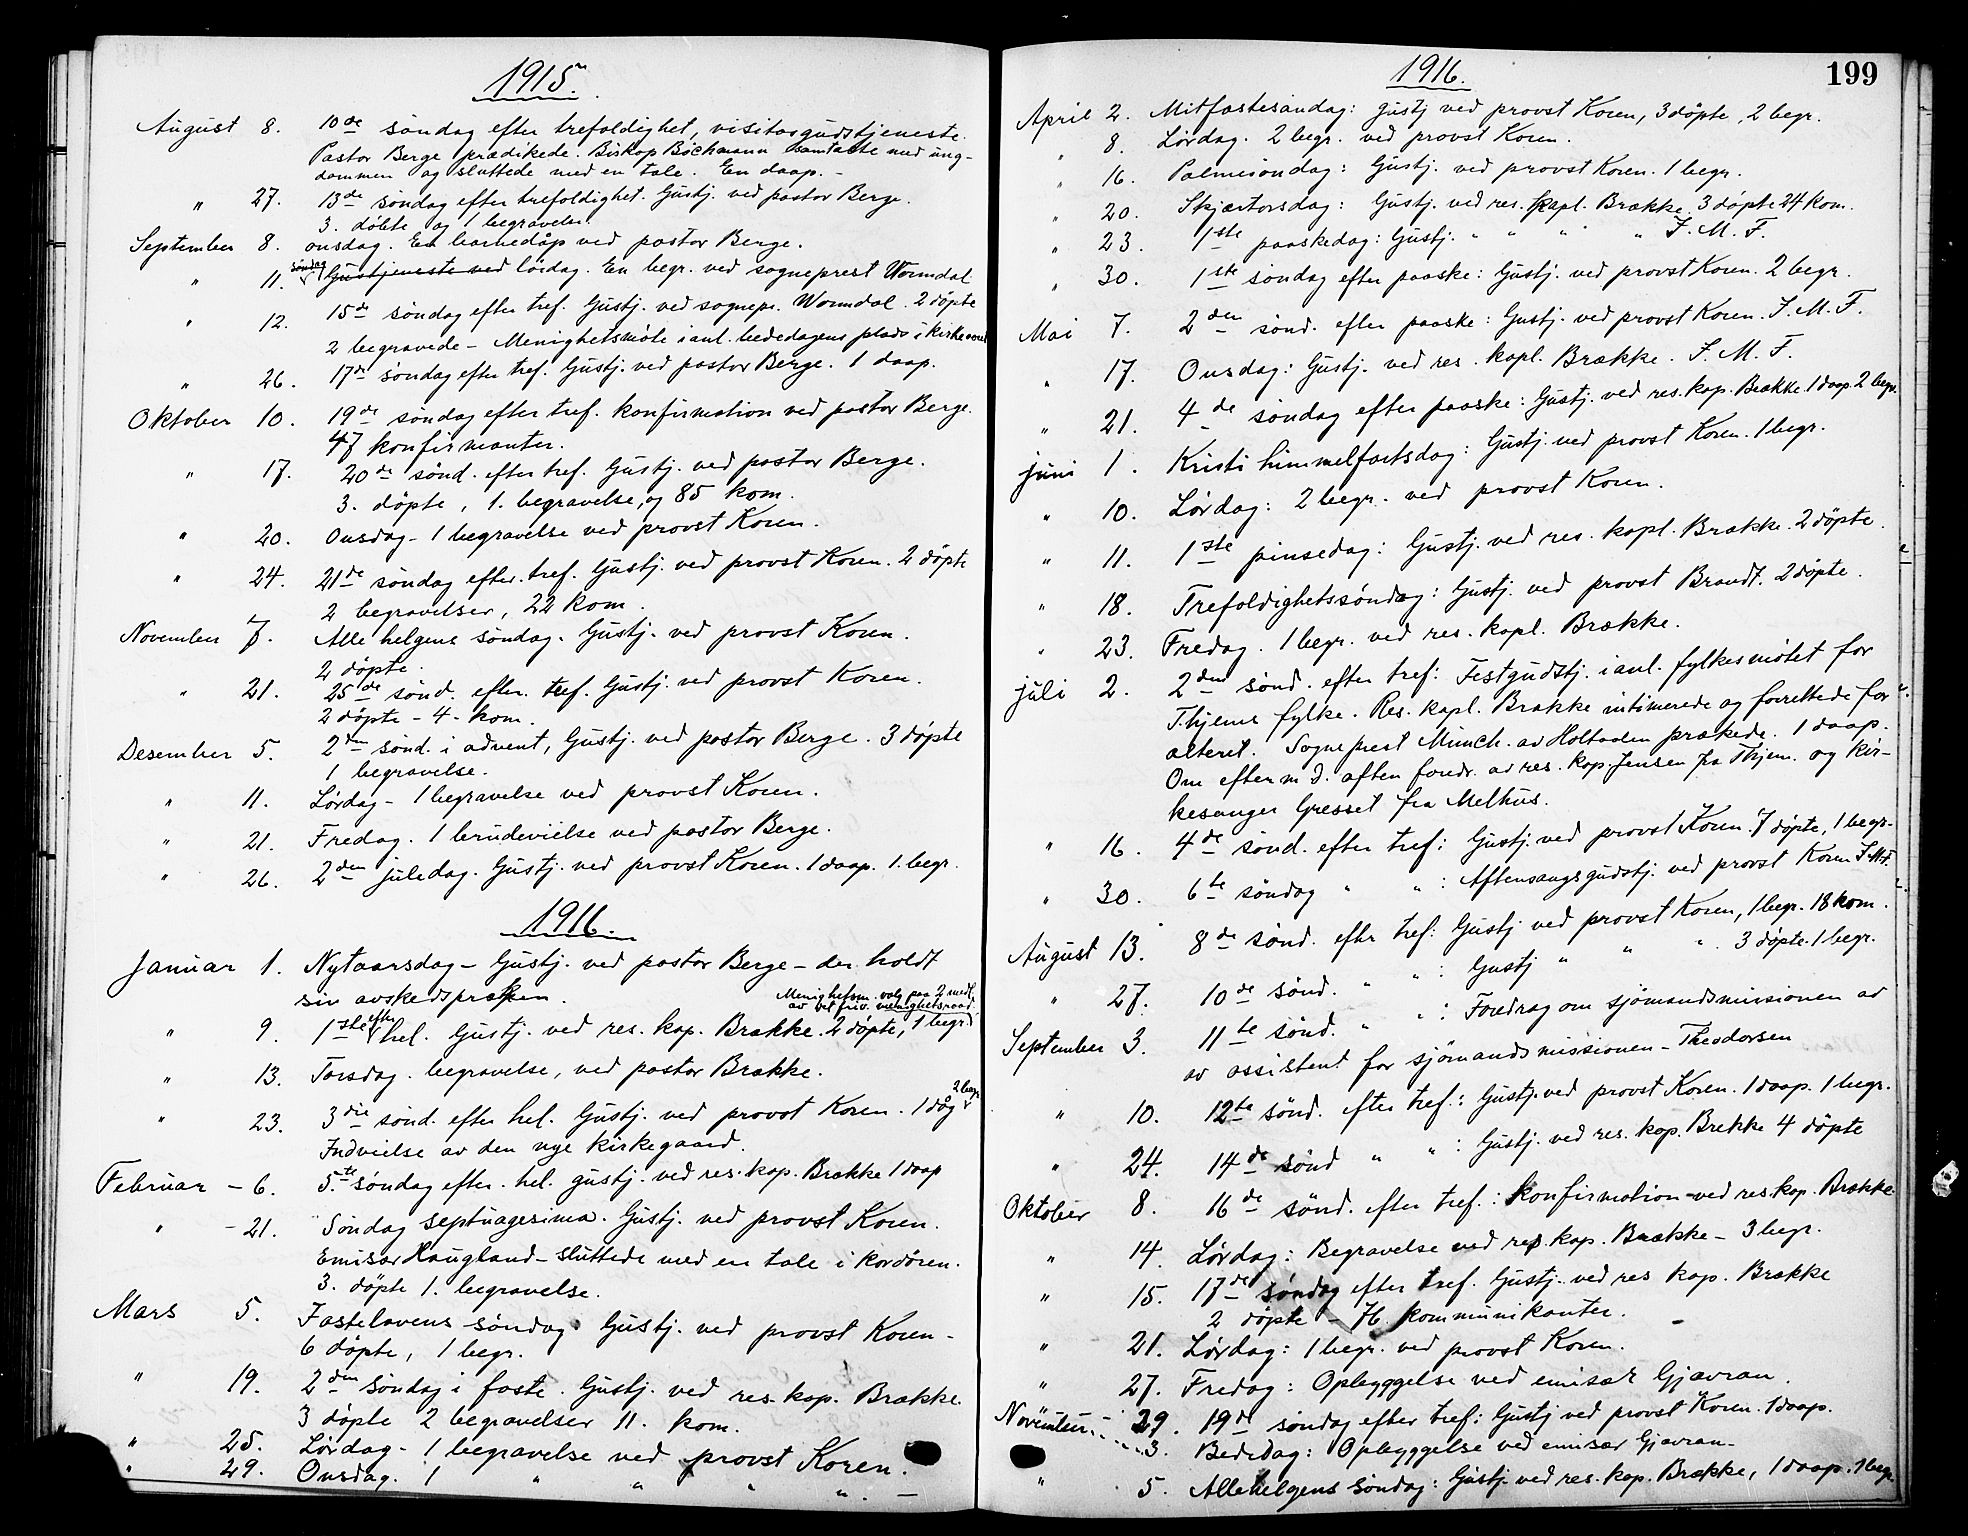 1915.
August 8. 10de søndag efter trefoldighet, visitasgudstjeneste.
Pastor Berge prædikede. Biskop Bøchmann samtalte med ung-
dommen og sluttede med en tale. En daap. -
" 27. 13de søndag efter trefoldighet. Gustj. ved pastor Berge.
3. døbte og 1 begravelse.
September 8. onsdag. En barnedåp ved pastor Berge.
" 11. Gustjeneste ved lördag. En begr. ved sogneprest Wormdal
søndag
" 12. 15de søndag efter tref. Gustj. ved sognepr. Wormdal. 2 døpte
2 begravede - Menighetsmöte i anl. bededagens plads i kirkeaaret
" 26. 17de søndag efter tref. Gustj. ved pastor Berge. 1 daap.
Oktober 10. 19de søndag efter tref. konfirmation ved pastor Berge.
47 konfirmanter.
" 17. 20de sønd. efter tref. Gustj. ved pastor Berge.
3. døpte, 1. begravelse, og 85 kom.
" 20. Onsdag - 1 begravelse ved provst Koren.
" 24. 21de søndag efter. tref. Gustj. ved provst Koren. 2 døpte
2 begravelser, 22 kom.
November 7. Alle helgens søndag. Gustj. ved provst Koren.
2 døpte.
" 21. 25de sønd. efter. tref. Gustj. ved provst Koren.
2 døpte - 4 - kom.
Desember 5. 2den sønd. i advent, Gustj. ved pastor Berge. 3 døpte
1 begravelse.
" 11. Lørdag - 1 begravelse ved provst Koren.
" 21. Fredag. 1 brudevielse ved pastor Berge.
" 26. 2den juledag. Gustj. ved provst Koren. 1 daap. 1. begr.
1916.
Januar 1. Nytaarsdag - Gustj. ved pastor Berge - der holdt
sin avskedspræken.
Menighetsm. valg paa 2 medl.
av det friv. menighetsraad.
" 9. 1ste efter hel. Gustj. ved res. kap. Brække. 2 døpte, 1 begr.
" 13. Torsdag. begravelse, ved pastor Brække.
" 23. 3die sønd. efter hel. Gustj. ved provst Koren. 1 dåp 2 begr.
Indvielse av den nye kirkegaard.
Februar - 6. 5.te søndag efter. hel. gustj. ved res. kap. Brække 1 daap
" - 21. Søndag septuagesima. Gustj. ved provst Koren.
Emisær Haugland - sluttede med en tale i kordøren.
3. døpte 1. begravelse.
Mars 5. Fastelavens søndag. Gustj. ved provst Koren -
6 døpte, 1 begr.
" 19. 2den søndag i faste. Gustj. ved res. kap. Brække.
3 døpte 2 begravelser 11. kom.
" 25. Lørdag - 1 begravelse ved provst Koren.
" 29. Onsdag. 1 " " " ". -
1916.
199
April 2. Mitfastesøndag: gustj ved provst Koren, 3 döpte, 2 begr.
" 8. Lørdag. 2 begr. ved provst Koren.
" 16. Palmesøndag: Gustj. ved provst Koren. 1 begr.
" 20. Skjærtorsdag: Gustj. ved res. kapl. Brække. 3 døpte 24 kom.
" 23. 1ste paaskedag: Gustj. " " " " I. M. F.
" 30. 1ste søndag efter paaske: Gustj. ved provst Koren. 2 begr.
Mai 7. 2den sønd. efter paaske: Gustj. ved provst Koren. I. M. F.
" 17. Onsdag: Gustj. ved res. kapl. Brække. I. M. F.
" 21. 4de søndag efter paaske: Gustj. ved res. kap. Brække. 1 daap. 2 begr.
juni 1. Kristi himmelfartsdag: Gustj. ved provst Koren. 1 begr.
" 10. Lørdag: 2 begr. ved provst Koren.
" 11. 1ste pinsedag: Gustj. ved res. kapl. Brække. 2 döpte.
" 18. Trefoldighetssøndag: Gustj. ved provst Brandt. 2 döpte.
" 23. Fredag. 1 begr. ved res. kapl. Brække.
juli 2. 2den sønd. efter tref: Festgudstj. i anl. fylkesmøtet for
Thjems fylke. Res. kapl. Brække intimerede og forrettede for
alteret. Sogneprest Münch. av Holtaalen prækede. 1 daap.
Om efterm d. aften foredr. av res. kap. Jensen fra Thjem. og kir-
kesanger Gresset fra Melhus.
" 16. 4de sønd. efter tref: Gustj. ved provst Koren. 7 döpte, 1 begr.
" 30. 6te søndag " ": Aftensangsgudstj. ved provst Koren I.M.F.
August 13. 8de sønd. efter tref: Gustj ved provst Koren, 1 begr. 18 kom.
" 27. 10de sønd. " ": Gustj " " ". 3 döpte. 1 begr.
September 3. 11te sønd. " ": Foredrag om sjömandsmissionen av
av assistent for sjömandsmissionen - Theodorsen
" 10. 12te sønd. efter tref.: Gustj. ved provst Koren. 1 daap. 1 begr.
" 24. 14de sønd " ": Gustj. ved res. kap. Brekke 4 döpte
Oktober 8. 16de sønd. efter tref.: Konfirmation ved res. kap. Brække.
" 14. Lørdag: Begravelse ved res. kap. Brække - 3 begr.
" 15. 17de søndag efter tref. Gustj. ved res kap. Brække
2 döpte - 76. kommunikanter.
" 21. Lørdag: 1 begr. ved provst Koren.
" 27. Fredag: Opbyggelse ved emisær Gjævran.
" 29. 19de søndag efter tref: Gustj ved provst Koren. 1 daap.
November 3. Bededag: Opbyggelse ved emisær Gjævran.
" 5. Allehelgens søndag: Gustj. ved res. kap. Brække, 1 daap. 1 begr.